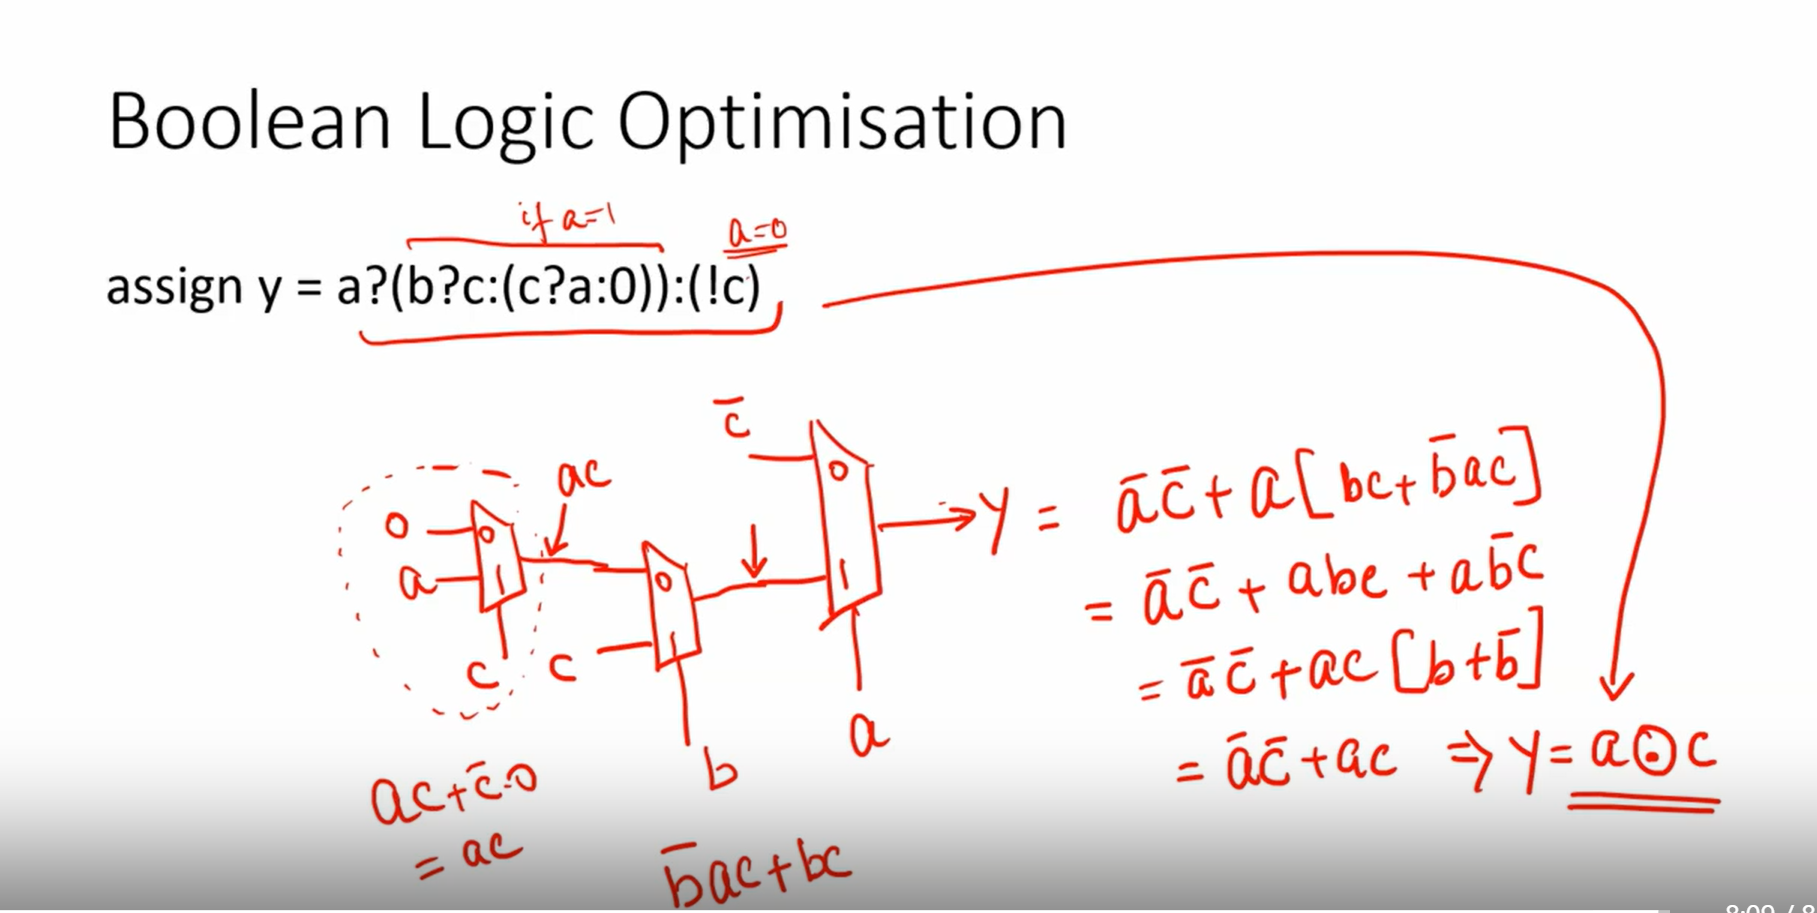 Boolean Logic Optimisation
if a=1
a=0
assign y = a?(b?c:(c?a:0)):(!c)
c̅
ac
0
0
a
1
c
0
c
1
b
0
1
a
Y = a̅c̅+a[bc+b̅ac]
= a̅c̅+abc+ab̅c
= a̅c̅+ac[b+b̅]
= a̅c̅+ac ⇒ Y= a⊙c
ac+c̅·0
= ac
b̅ac+bc